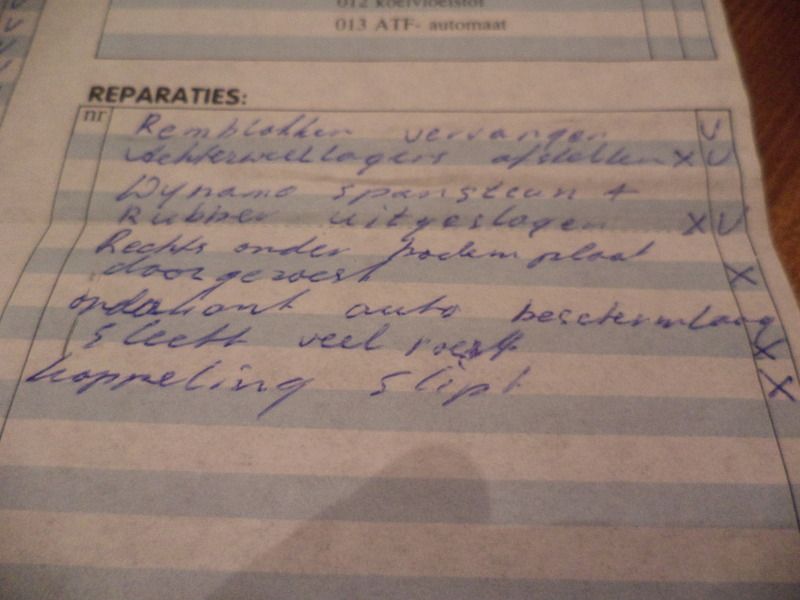 012 koelvloeistof
013 ATF- automaat
REPARATIES:
nr
Remblokken vervangen V
Achterwiellagers afstellen X V
Dynamo spansteun +
Rubber uitgeslagen X V
Rechts onder bodemplaat
doorgeroest X
onderkant auto beschermlaag
slecht veel roest X
koppeling slipt X